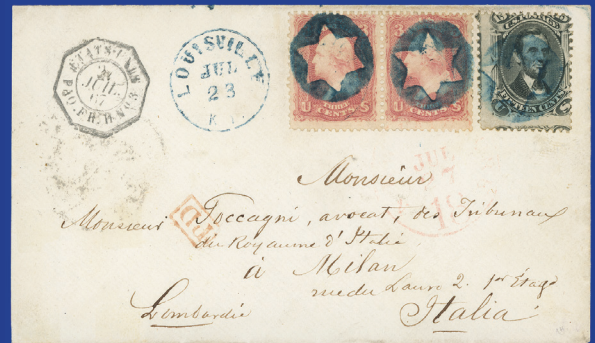 ETATS-UNIS
LOUISVILLE
JUL
23
U THREE S
CENTS
U THREE S
CENTS
JUL
PD
Monsieur
Monsieur Toccagni, avocat, des Tribunaux
du Royaume d'Italie
à Milan
rue du Lauro 2. 1er Étage
Lombardie
Italia